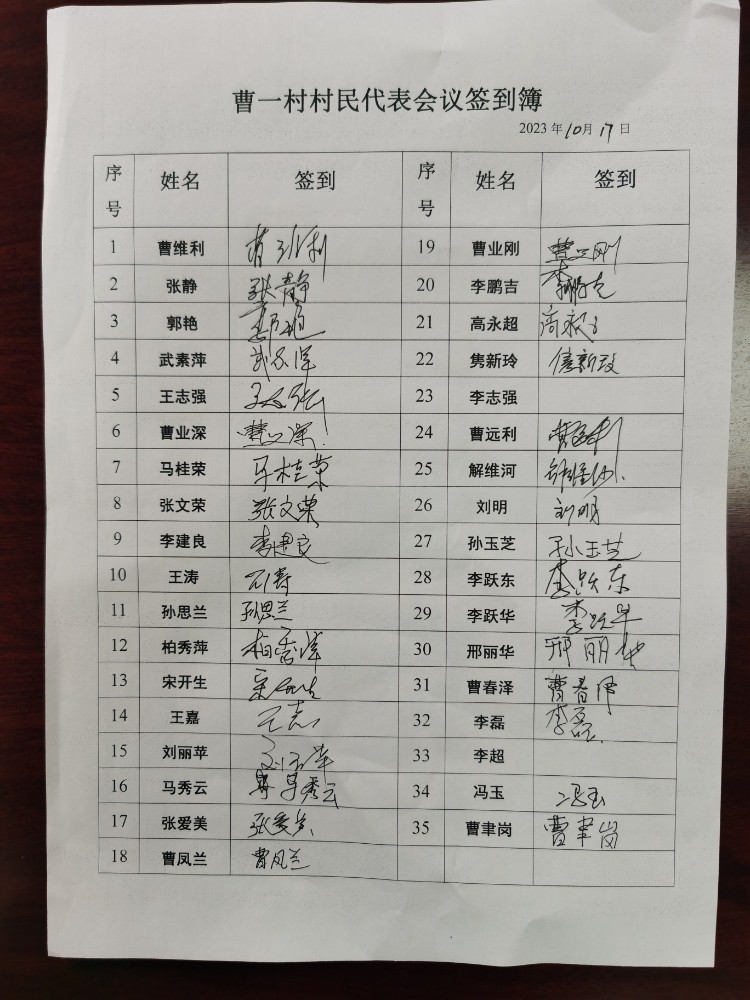 曹一村村民代表会议签到簿
2023 年 10 月 17 日
序号 姓名 签到 序号 姓名 签到
1 曹维利 曹维利 19 曹业刚 曹业刚
2 张静 张静 20 李鹏吉 李鹏吉
3 郭艳 郭艳 21 高永超 高永超
4 武素萍 武素萍 22 隽新玲 隽新玲
5 王志强 王志强 23 李志强
6 曹业深 曹业深 24 曹远利 曹远利
7 马桂荣 马桂荣 25 解维河 解维河
8 张文荣 张文荣 26 刘明 刘明
9 李建良 李建良 27 孙玉芝 孙玉芝
10 王涛 王涛 28 李跃东 李跃东
11 孙思兰 孙思兰 29 李跃华 李跃华
12 柏秀萍 柏秀萍 30 邢丽华 邢丽华
13 宋开生 宋开生 31 曹春泽 曹春泽
14 王嘉 王嘉 32 李磊 李磊
15 刘丽苹 刘丽苹 33 李超
16 马秀云 马秀云 34 冯玉 冯玉
17 张爱美 张爱美 35 曹聿岗 曹聿岗
18 曹凤兰 曹凤兰